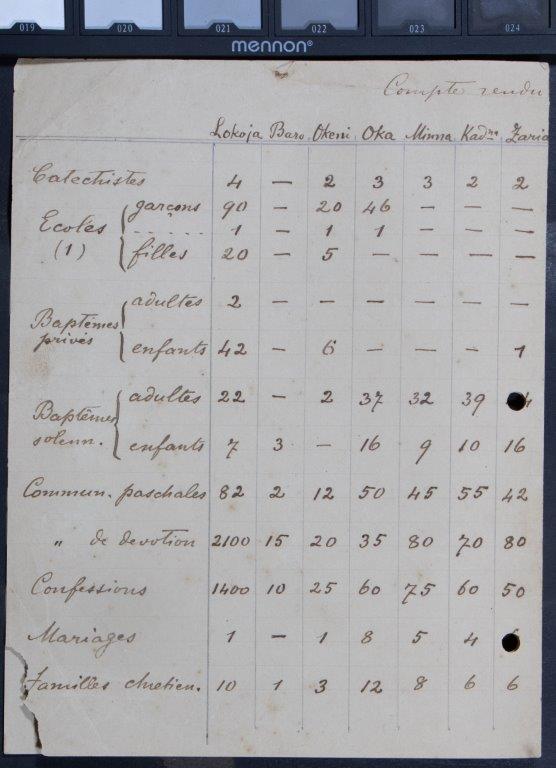 019 020 021 022 023 024
mennon®
Compte rendu
Lokoja Baro Okeni Oka Minna Kadna Zaria
Catechistes 4 — 2 3 3 2 2
garçons 90 — 20 46 — — —
Ecoles ...... 1 — 1 1 — — —
(1) filles 20 — 5 — — — —
adultes 2 — — — — — —
Baptêmes
privés
enfants 42 — 6 — — — 1
adultes 22 — 2 37 32 39
Baptêmes
solenn.
enfants 7 3 — 16 9 10 16
Commun. paschales 82 2 12 50 45 55 42
" de devotion 2100 15 20 35 80 70 80
Confessions 1400 10 25 60 75 60 50
Mariages 1 — 1 8 5 4
Familles chretien. 10 1 3 12 8 6 6